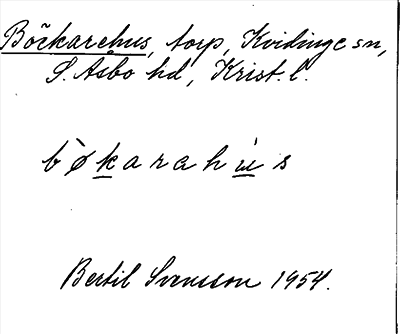 Böckarehus, torp, Kvidinge sn,
S. Åsbo hd, Krist. l.
b̀økarahús
Bertil Svensson 1954.